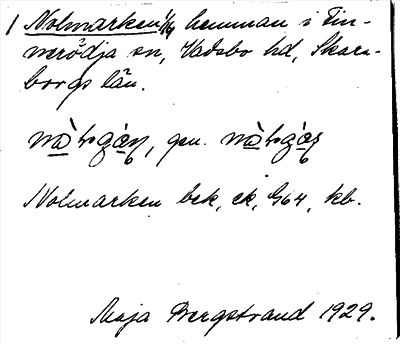 1 Nolmarken 1/4 hemman i Tin-
merödja sn, Vadsbo hd, Skara-
borgs län.
gen.
Nolmarken bek, ek, G64, kb.
Maja Bergstrand 1929.